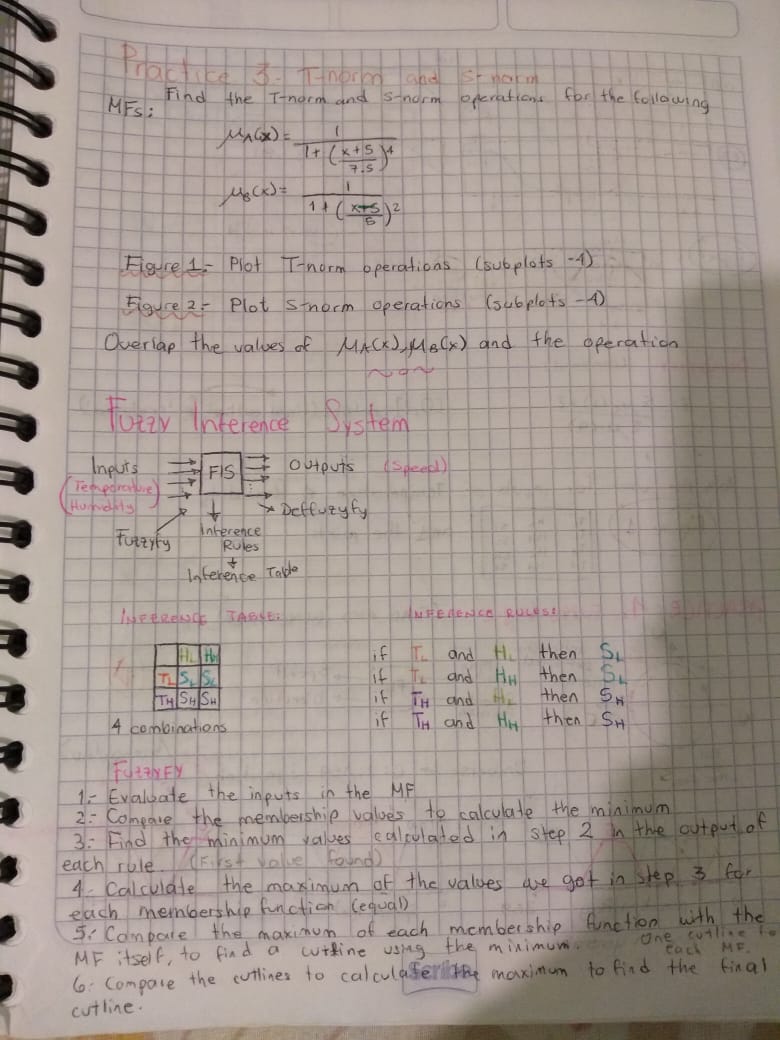 Practice 3.- T-norm and S-norm
Find the T-norm and S-norm operations for the following
MFs:
μA(x)= 1 / 1+(x+5/7.5)^4
μB(x)= 1 / 1+(x+5/5)^2
Figure 1.- Plot T-norm operations (subplots -4)
Figure 2.- Plot S-norm operations (subplots -4)
Overlap the values of μA(x), μB(x) and the operation
Fuzzy Inference System
Inputs FIS Outputs (Speed)
(Temperature
Humidity)
Fuzzyfy Inference Rules Deffuzyfy
Inference Table
INFERENCE TABLE: INFERENCE RULES:
HL HH
TL SL SL
TH SH SH
4 combinations
if TL and HL then SL
if TL and HH then SL
if TH and HL then SH
if TH and HH then SH
FUZZYFY
1.- Evaluate the inputs in the MF
2.- Compare the membership values to calculate the minimum
3.- Find the minimum values calculated in step 2 in the output of
each rule. (First value found)
4.- Calculate the maximum of the values we got in step 3 for
each membership function (equal)
5.- Compare the maximum of each membership function with the
MF itself, to find a cutline using the minimum. One cutline to
each MF.
6.- Compare the cutlines to calculate the maximum to find the final
cutline.